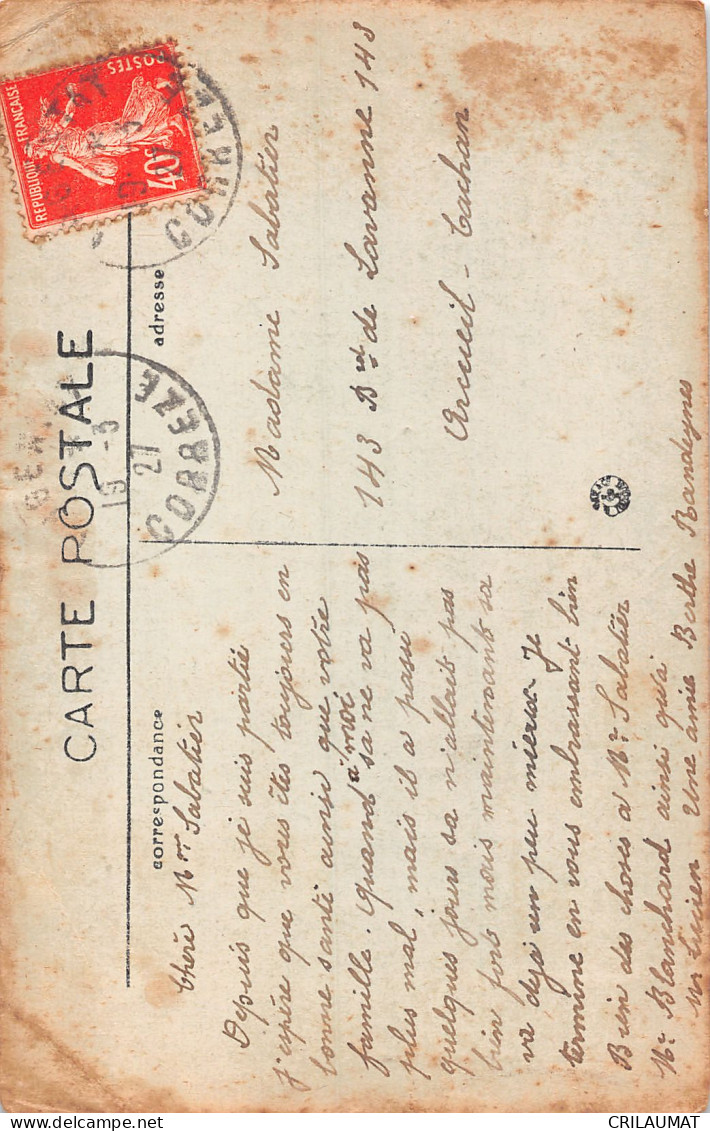 CARTE POSTALE
correspondance
adresse
REPUBLIQUE FRANÇAISE
POSTES
40c
CORREZE
19 -3
27
CORREZE
Chère Mme Sabatier
Depuis que je suis partie
j'espère que vous êtes toujours en
bonne santé ainsi que votre
famille. Quand à moi sa ne va pas
plus mal, mais il a passé
quelques jours sa n'allait pas
bien fors mais maintenants sa
va déjà un peu mieux. Je
termine en vous embrassant bien
Bien des choses à Mr Sabatier
Mr Blanchard ainsi qu'à
Mr Lucien Une amie Berthe
Madame Sabatier
143 Bvd de Lavanne 143
Arcueil-Cachan
CRILAUMAT